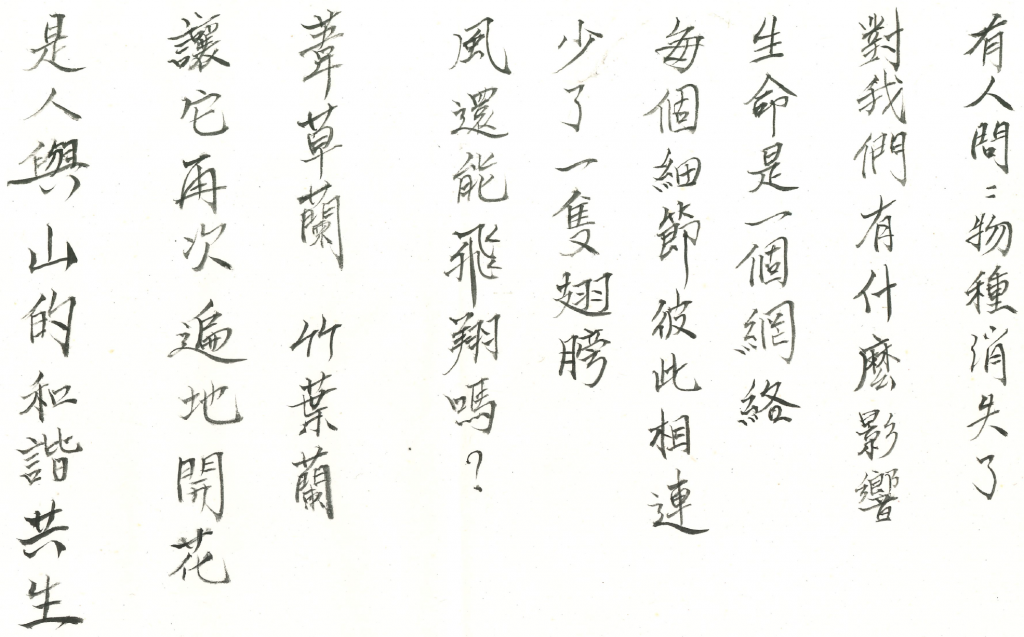 有人問：物種消失了
對我們有什麼影響
生命是一個網絡
每個細節彼此相連
少了一隻翅膀
風還能飛翔嗎？
葦草蘭　竹葉蘭
讓它再次遍地開花
是人與山的和諧共生